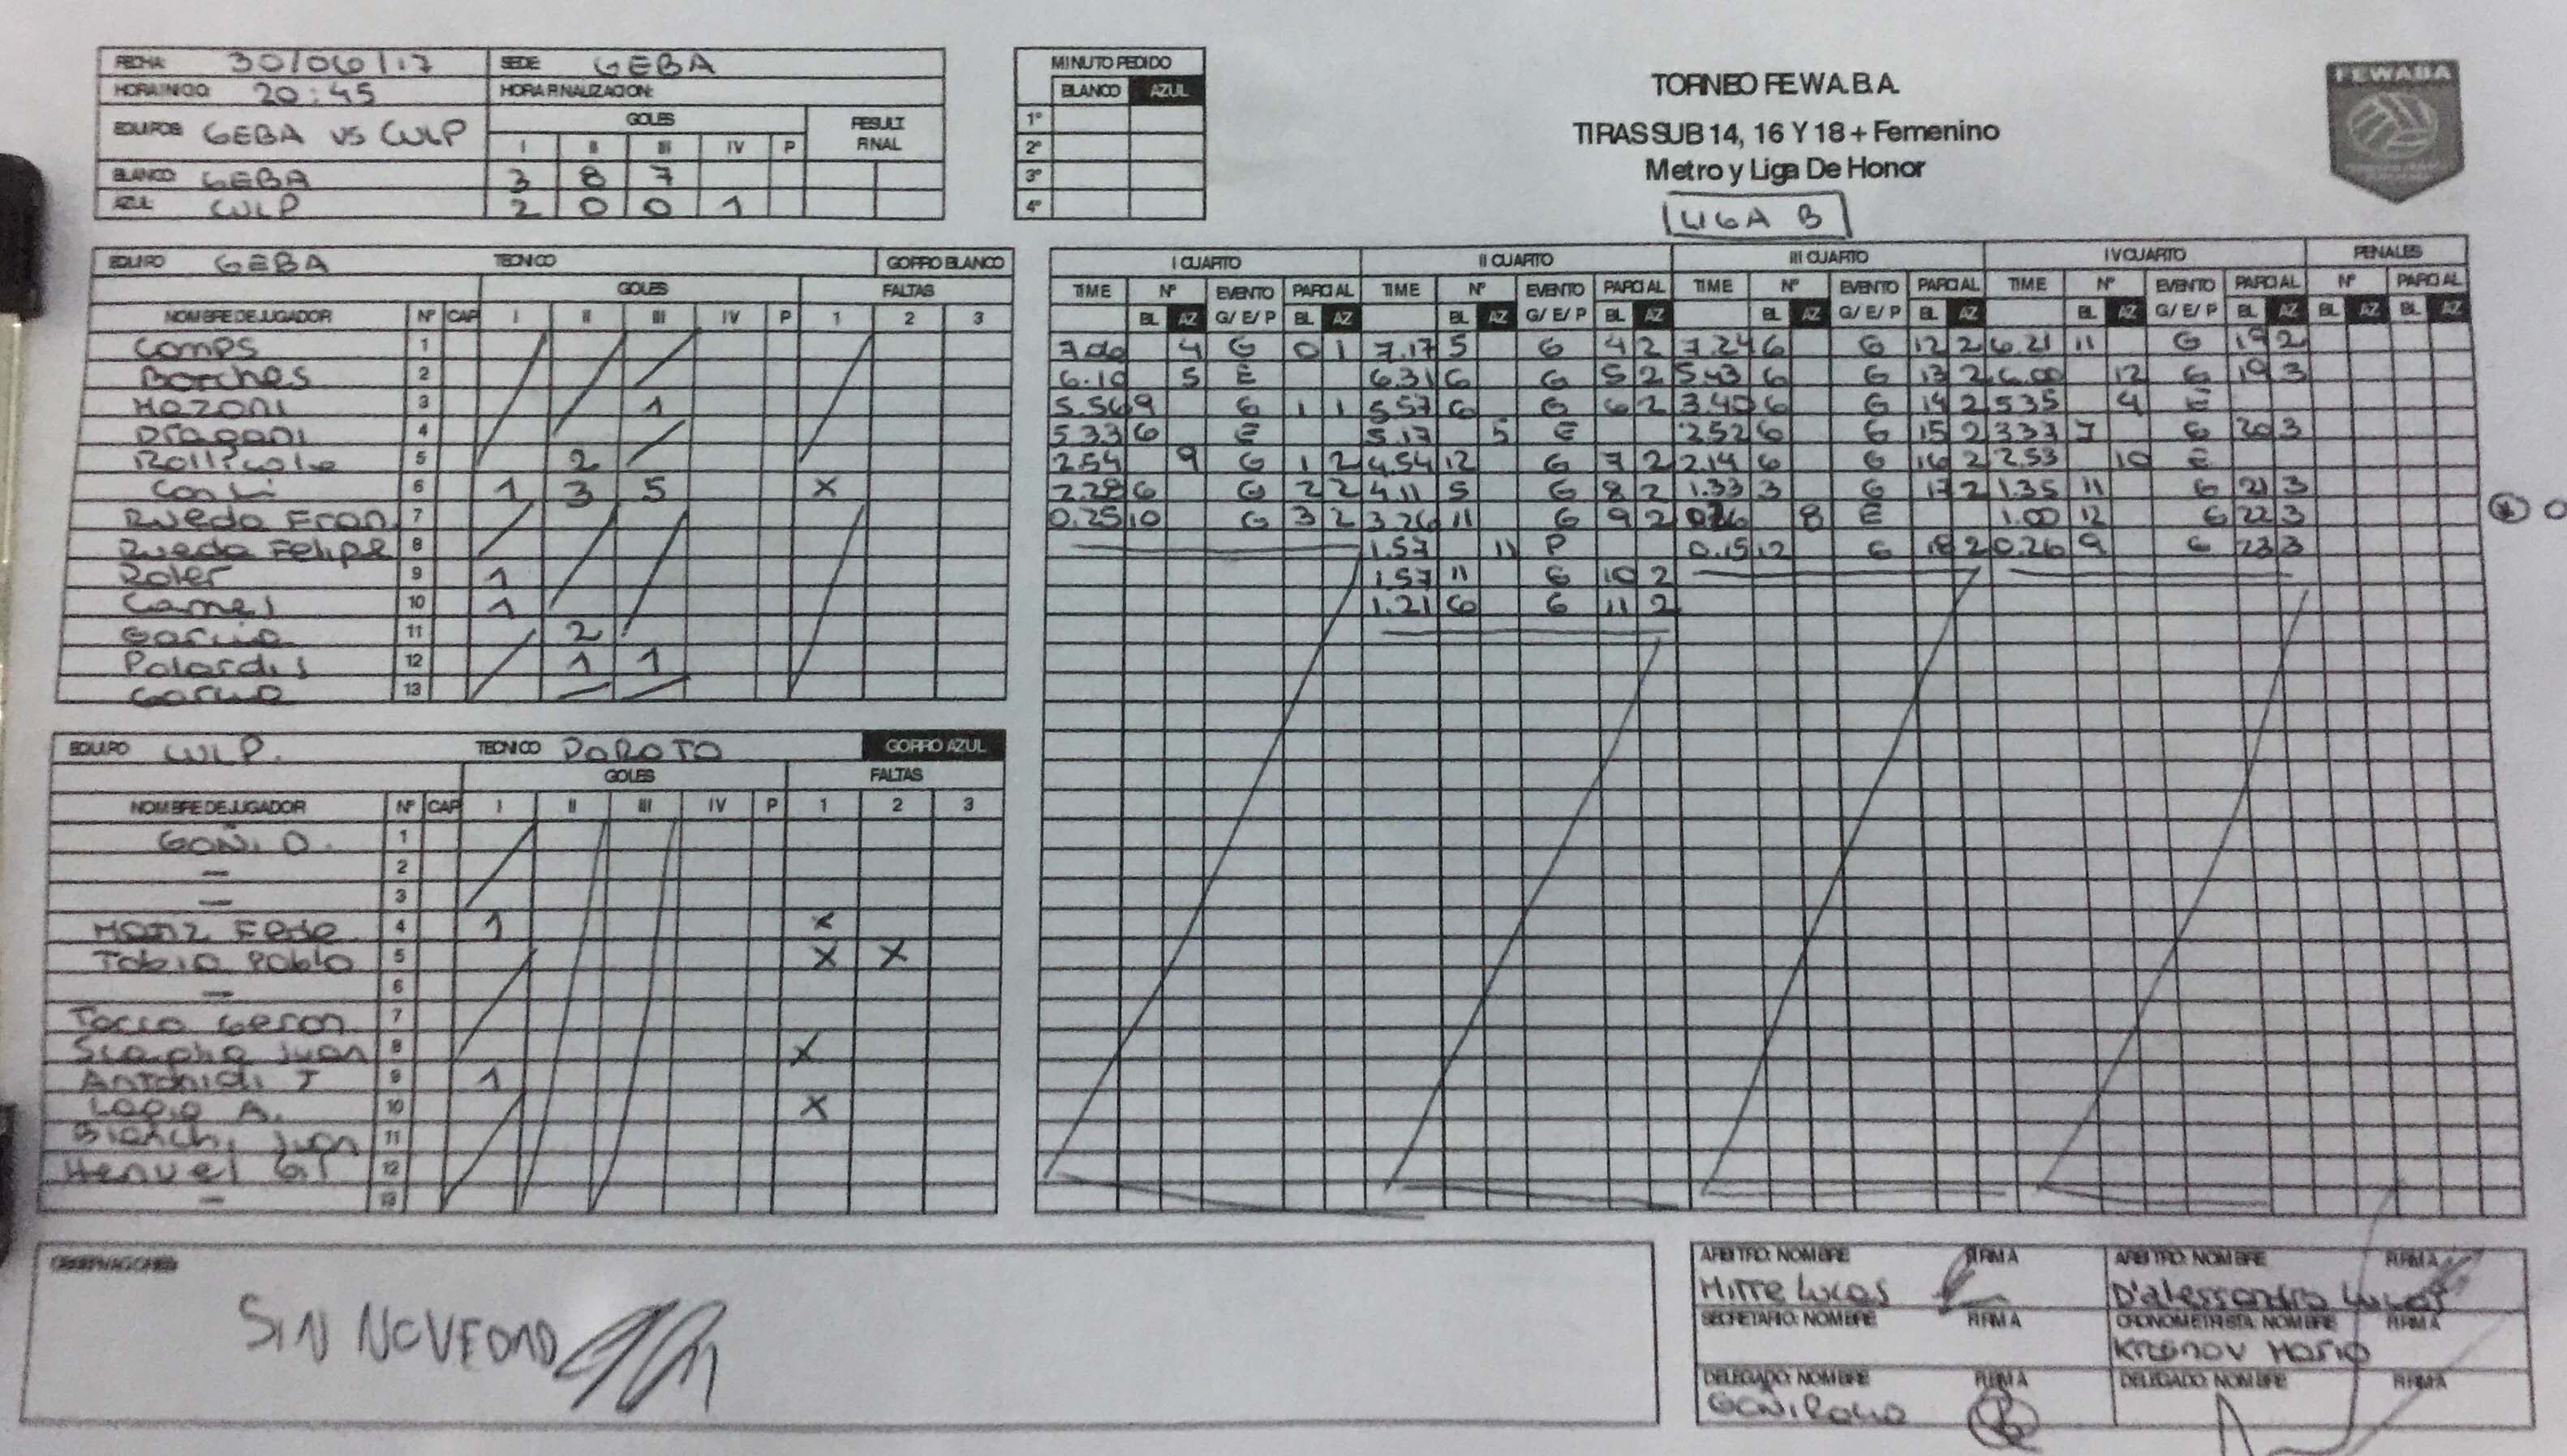 FECHA: 30/06/17 SEDE GEBA
HORA INICIO: 20:45 HORA FINALIZACION:
EQUIPOS GEBA VS CULP GOLES RESULT FINAL
I II III IV P
BLANCO: GEBA 3 8 7
AZUL: CULP 2 0 0 1
MINUTO PEDIDO
BLANCO AZUL
1º
2º
3º
4º
TORNEO FE.WA.B.A.
TIRAS SUB 14, 16 Y 18 + Femenino
Metro y Liga De Honor
LIGA B
FEWABA
EQUIPO GEBA TECNICO GORRO BLANCO
GOLES FALTAS
NOMBRE DE JUGADOR Nº CAP I II III IV P 1 2 3
Comps 1
Borches 2
Mazoni 3 1
Dragani 4
5 2
6 1 3 5 X
Rueda Fran. 7
Rueda Felipe 8
Roler 9 1
10 1
Gariso 11 2
Polardis 12 1 1
13
EQUIPO CULP. TECNICO POROTO GORRO AZUL
GOLES FALTAS
NOMBRE DE JUGADOR Nº CAP I II III IV P 1 2 3
Goñi O. 1
— 2
— 3
Fede 4 1 X
Tobio Pablo 5 X X
— 6
Geron 7
Juan 8 X
J 9 1
A. 10 X
Bianchi Juan 11
12
— 13
I CUARTO II CUARTO III CUARTO IV CUARTO PENALES
TIME Nº EVENTO PARCIAL TIME Nº EVENTO PARCIAL TIME Nº EVENTO PARCIAL TIME Nº EVENTO PARCIAL Nº PARCIAL
BL AZ G/ E/ P BL AZ BL AZ G/ E/ P BL AZ BL AZ G/ E/ P BL AZ BL AZ G/ E/ P BL AZ BL AZ BL AZ
7.06 4 G 0 1 7.17 5 G 4 2 7.24 6 G 12 2 6.21 11 G 19 2
6.10 5 E 6.31 6 G 5 2 5.43 6 G 13 2 6.00 12 G 19 3
5.56 9 G 1 1 5.57 6 G 6 2 3.40 6 G 14 2 5.35 4 E
5.33 6 E 5.17 5 E 2.52 6 G 15 2 3.37 7 G 20 3
2.54 9 G 1 2 4.54 12 G 7 2 2.14 6 G 16 2 2.53 10 E
2.28 6 G 2 2 4.11 5 G 8 2 1.33 3 G 17 2 1.35 11 G 21 3
0.25 10 G 3 2 3.26 11 G 9 2 8 E 1.00 12 G 22 3
1.57 11 P 0.15 12 G 18 2 0.26 9 G 23 3
1.57 11 G 10 2
1.21 6 G 11 2
OBSERVACIONES
SIN NOVEDAD
ARBITRO: NOMBRE FIRMA ARBITRO: NOMBRE FIRMA
Mitre Lucas D'alessandro Lucas
SECRETARIO: NOMBRE FIRMA CRONOMETRISTA: NOMBRE FIRMA
Krasnov Mario
DELEGADO: NOMBRE FIRMA DELEGADO: NOMBRE FIRMA
Goñi